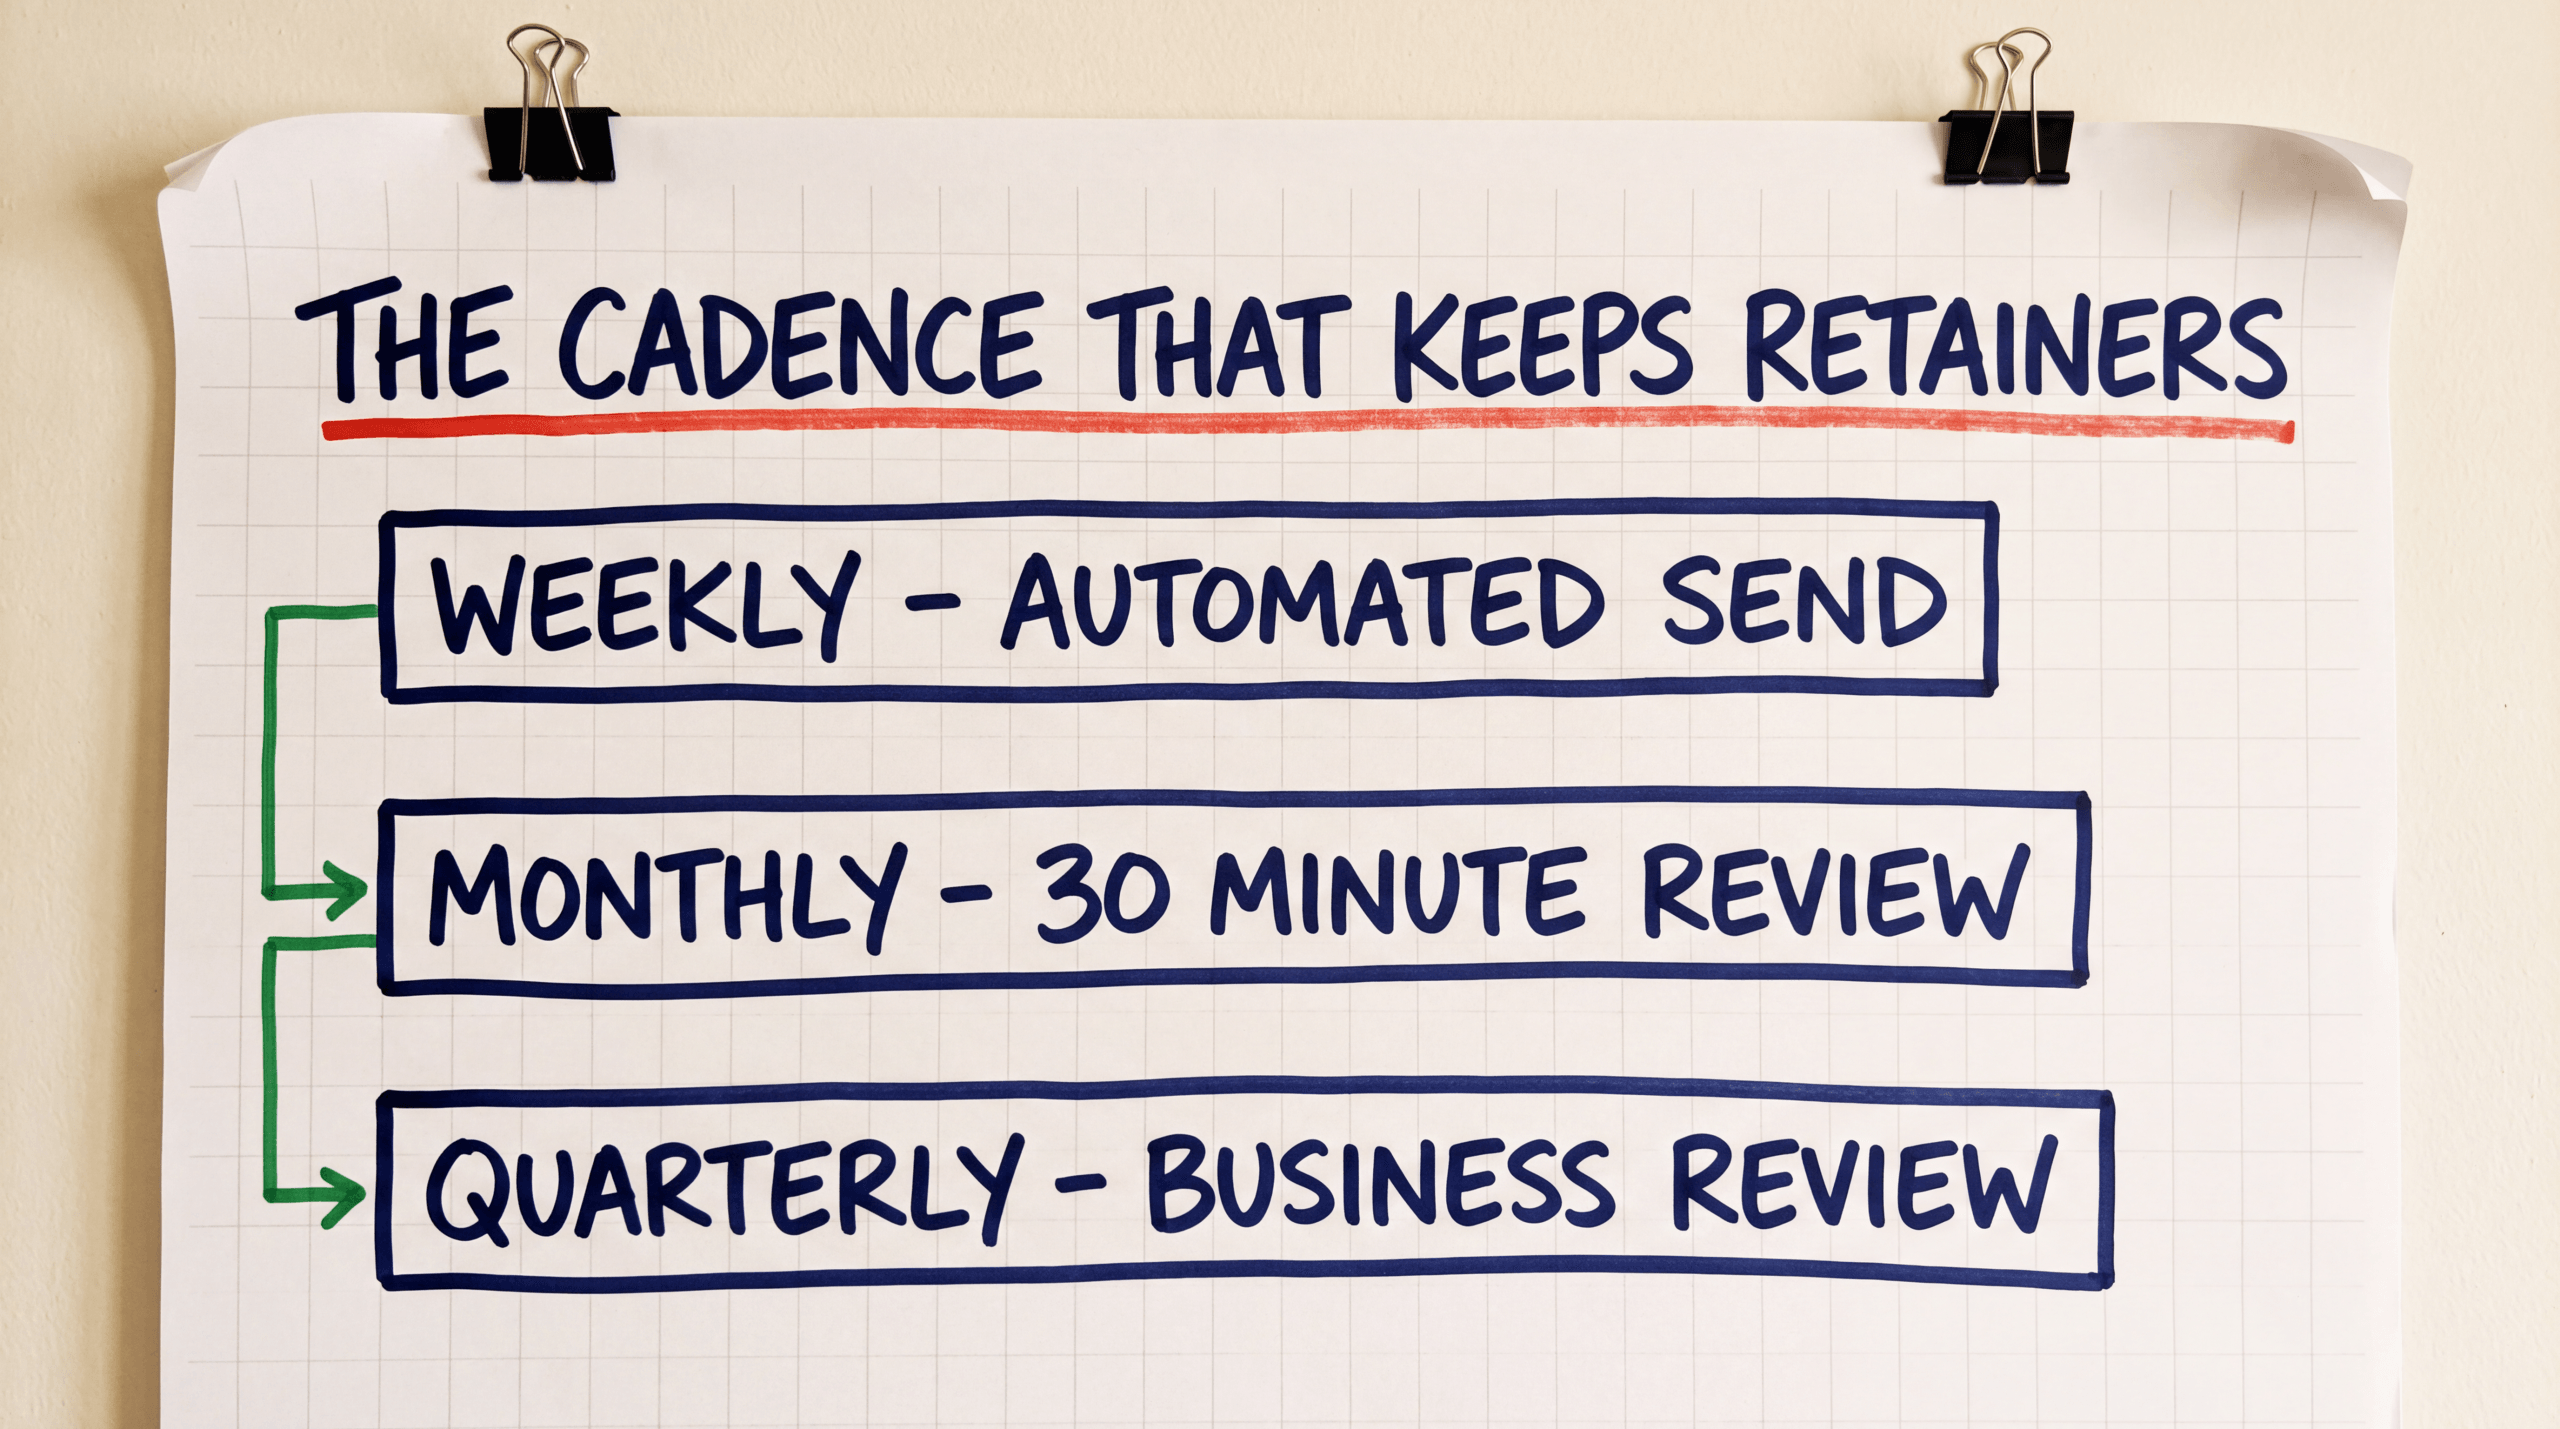 THE CADENCE THAT KEEPS RETAINERS
WEEKLY - AUTOMATED SEND
MONTHLY - 30 MINUTE REVIEW
QUARTERLY - BUSINESS REVIEW